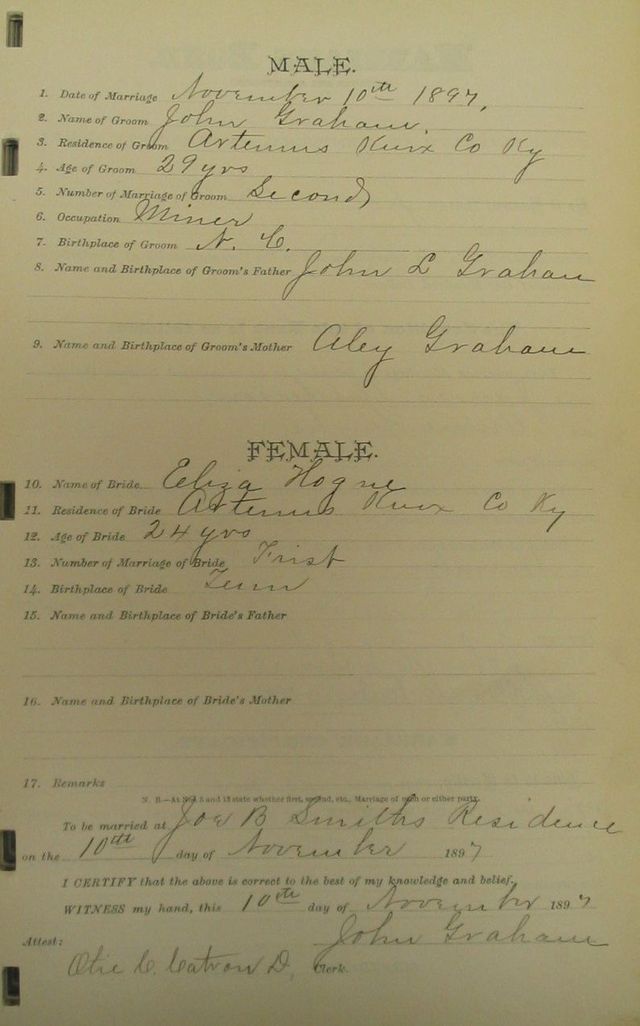 MALE.
1. Date of Marriage November 10th 1897,
2. Name of Groom John Graham.
3. Residence of Groom Artemus Knox Co Ky
4. Age of Groom 29 yrs
5. Number of Marriage of Groom Second
6. Occupation Miner
7. Birthplace of Groom N. C.
8. Name and Birthplace of Groom's Father John L Graham
9. Name and Birthplace of Groom's Mother Aley Graham
FEMALE.
10. Name of Bride Eliza Hogue
11. Residence of Bride Artemus Knox Co Ky
12. Age of Bride 24 yrs
13. Number of Marriage of Bride Frist
14. Birthplace of Bride Tenn
15. Name and Birthplace of Bride's Father
16. Name and Birthplace of Bride's Mother
17. Remarks
N. B.—At Nos. 5 and 13 state whether first, second, etc., Marriage of each or either party.
To be married at Joe B Smiths Residence
on the 10th day of November 1897
I CERTIFY that the above is correct to the best of my knowledge and belief.
WITNESS my hand, this 10th day of November 1897
John Graham
Attest:
C. Catron D. Clerk.